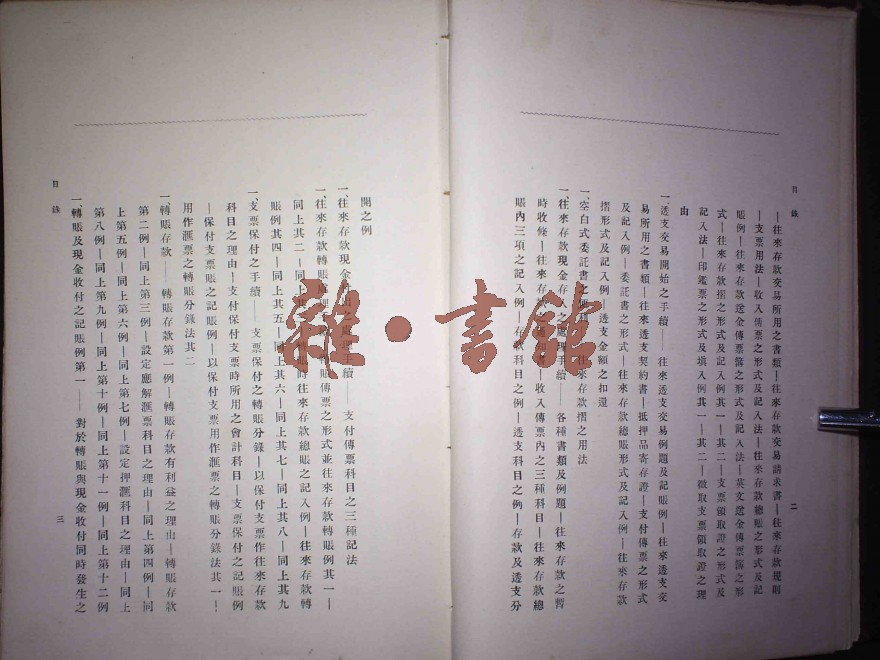 目錄
二
—往來存款交易所用之書類—往來存款交易請求書—往來存款規則
—支票用法—收入傳票之形式及記入法—往來存款總賬之形式及記
賬例—往來存款送金傳票簿之形式及記入法—英文送金傳票簿之形
式—往來存款摺之形式及記入例其一—其二—支票領取證之形式及
記入法—印鑑票之形式及填入例其一—其二—徵取支票領取證之理
由
一、透支交易開始之手續——往來透支交易例題及記賬例—往來透支交
易所用之書類—往來透支契約書—抵押品寄存證—支付傳票之形式
及記入例—委託書之形式—往來存款總賬形式及記入例—往來存款
摺形式及記入例—透支金額之扣還
一、空白式委託書之 往來存款摺之用法
一、往來存款現金存入之處理手續——各種書類及例題—往來存款之暫
時收條—往來存 —收入傳票內之三種科目—往來存款總
賬內三項之記入例—存款科目之例—透支科目之例—存款及透支分
開之例
一、往來存款現金 之處理手續——支付傳票科目之三種記法
一、往來存款轉賬 轉賬傳票之形式並往來存款轉賬例其一—
同上其二—同上其 轉賬時往來存款總賬之記入例—往來存款轉
賬例其四—同上其五—同上其六—同上其七—同上其八—同上其九
一、支票保付之手續——支票保付之轉賬分錄—以保付支票作往來存款
科目之理由—支付保付支票時所用之會計科目—支票保付之記賬例
—保付支票賬之記賬例—以保付支票用作匯票之轉賬分錄法其一—
用作匯票之轉賬分錄法其二
一、轉賬存款——轉賬存款第一例—轉賬存款有利益之理由—轉賬存款
第二例—同上第三例—設定應解匯票科目之理由—同上第四例—同
上第五例—同上第六例—同上第七例—設定押匯科目之理由—同上
第八例—同上第九例—同上第十例—同上第十一例—同上第十二例
一、轉賬及現金收付之記賬例第一——對於轉賬與現金收付同時發生之
目錄
三
雜·書館